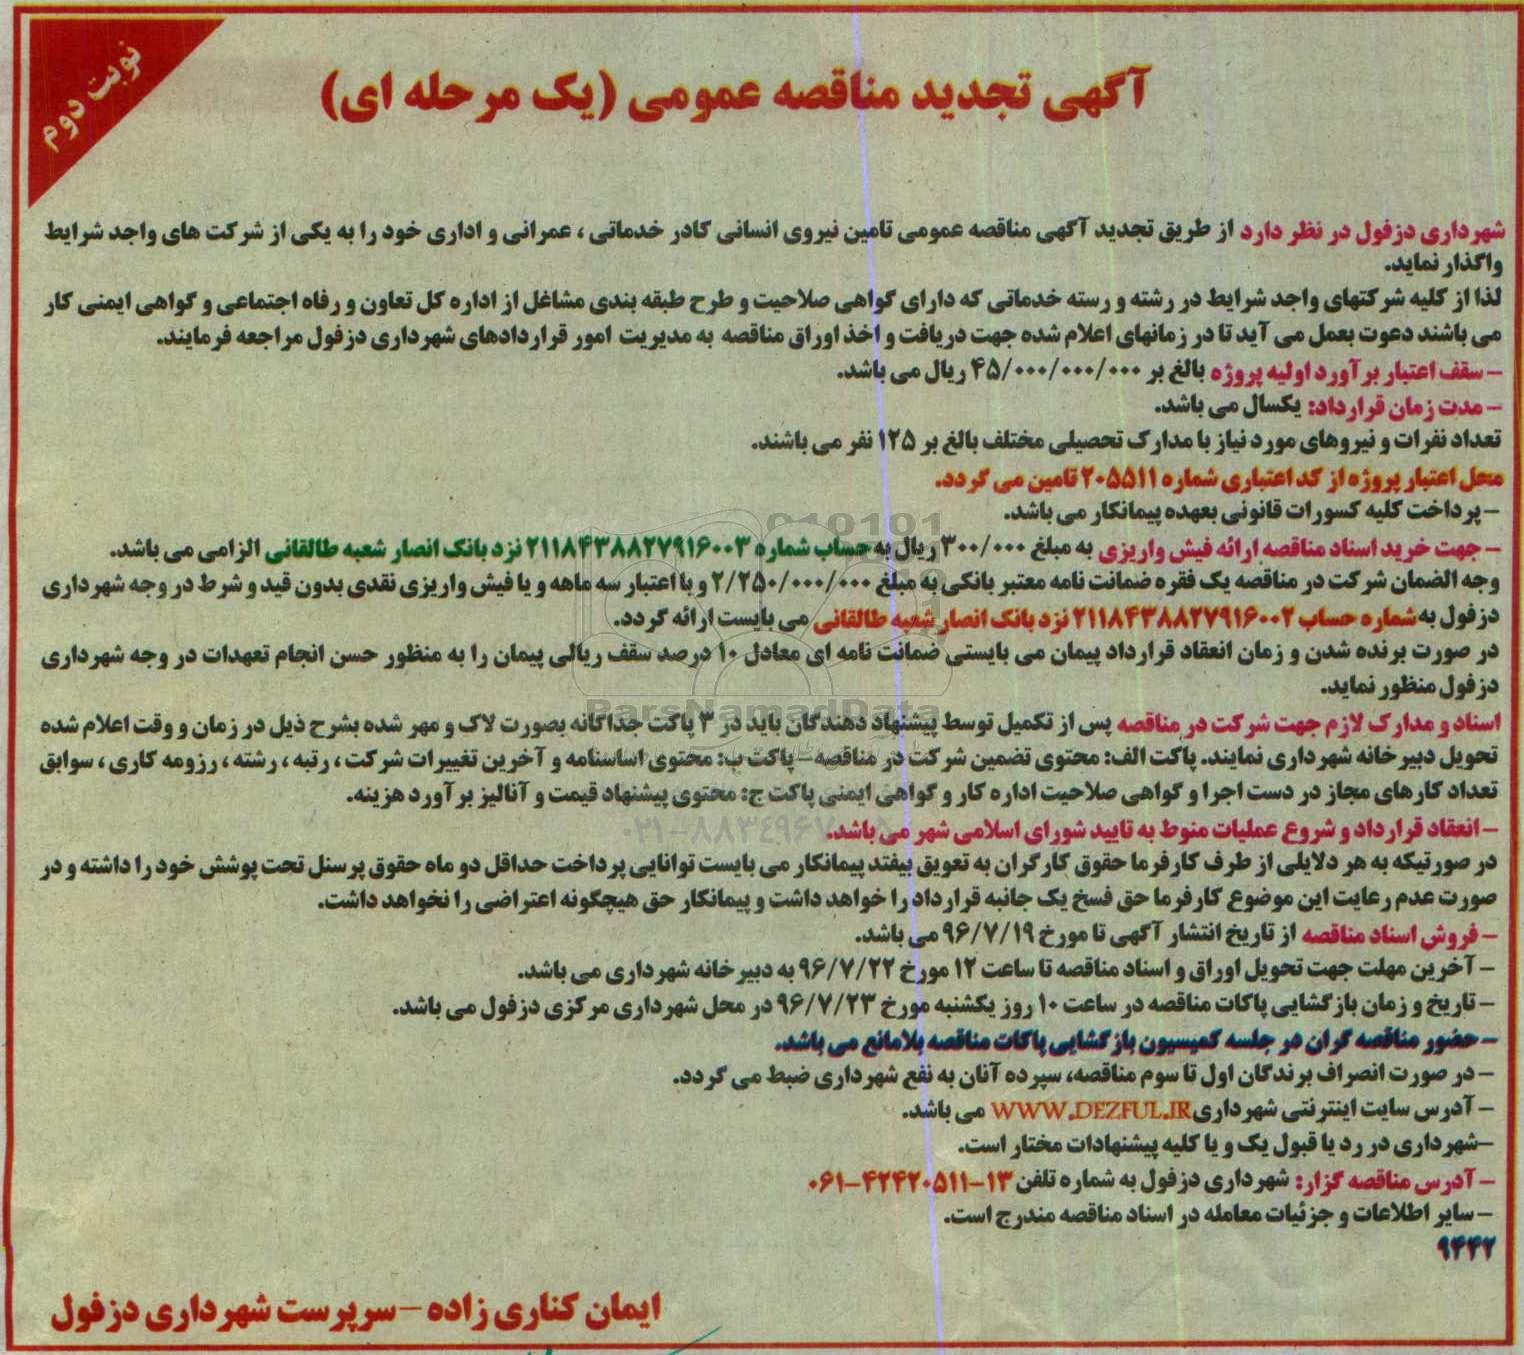 نوبت دوم
آگهی تجدید مناقصه عمومی (یک مرحله ای)
شهرداری دزفول در نظر دارد از طریق تجدید آگهی مناقصه عمومی تامین نیروی انسانی کادر خدماتی ، عمرانی و اداری خود را به یکی از شرکت های واجد شرایط
واگذار نماید.
لذا از کلیه شرکتهای واجد شرایط در رشته و رسته خدماتی که دارای گواهی صلاحیت و طرح طبقه بندی مشاغل از اداره کل تعاون و رفاه اجتماعی و گواهی ایمنی کار
می باشند دعوت بعمل می آید تا در زمانهای اعلام شده جهت دریافت و اخذ اوراق مناقصه به مدیریت امور قراردادهای شهرداری دزفول مراجعه فرمایند.
- سقف اعتبار برآورد اولیه پروژه بالغ بر ۴۵/۰۰۰/۰۰۰/۰۰۰ ریال می باشد.
- مدت زمان قرارداد: یکسال می باشد.
تعداد نفرات و نیروهای مورد نیاز با مدارک تحصیلی مختلف بالغ بر ۱۲۵ نفر می باشند.
محل اعتبار پروژه از کد اعتباری شماره ۲۰۵۵۱۱ تامین می گردد.
- پرداخت کلیه کسورات قانونی بعهده پیمانکار می باشد.
- جهت خرید اسناد مناقصه ارائه فیش واریزی به مبلغ ۳۰۰/۰۰۰ ریال به حساب شماره ۲۱۱۸۴۳۸۸۲۷۹۱۶۰۰۳ نزد بانک انصار شعبه طالقانی الزامی می باشد.
وجه الضمان شرکت در مناقصه یک فقره ضمانت نامه معتبر بانکی به مبلغ ۲/۲۵۰/۰۰۰/۰۰۰ و با اعتبار سه ماهه و یا فیش واریزی نقدی بدون قید و شرط در وجه شهرداری
دزفول به شماره حساب ۲۱۱۸۴۳۸۸۲۷۹۱۶۰۰۲ نزد بانک انصار شعبه طالقانی می بایست ارائه گردد.
در صورت برنده شدن و زمان انعقاد قرارداد پیمان می بایستی ضمانت نامه ای معادل ۱۰ درصد سقف ریالی پیمان را به منظور حسن انجام تعهدات در وجه شهرداری
دزفول منظور نماید.
ParsNamadData
اسناد و مدارک لازم جهت شرکت در مناقصه پس از تکمیل توسط پیشنهاد دهندگان باید در ۳ پاکت جداگانه بصورت لاک و مهر شده بشرح ذیل در زمان و وقت اعلام شده
تحویل دبیرخانه شهرداری نمایند. پاکت الف: محتوی تضمین شرکت در مناقصه - پاکت ب: محتوی اساسنامه و آخرین تغییرات شرکت ، رتبه ، رشته ، رزومه کاری ، سوابق
تعداد کارهای مجاز در دست اجرا و گواهی صلاحیت اداره کار و گواهی ایمنی پاکت ج: محتوی پیشنهاد قیمت و آنالیز برآورد هزینه.
- انعقاد قرارداد و شروع عملیات منوط به تایید شورای اسلامی شهر می باشد.
در صورتیکه به هر دلایلی از طرف کارفرما حقوق کارگران به تعویق بیفتد پیمانکار می بایست توانایی پرداخت حداقل دو ماه حقوق پرسنل تحت پوشش خود را داشته و در
صورت عدم رعایت این موضوع کارفرما حق فسخ یک جانبه قرارداد را خواهد داشت و پیمانکار حق هیچگونه اعتراضی را نخواهد داشت.
- فروش اسناد مناقصه از تاریخ انتشار آگهی تا مورخ ۹۶/۷/۱۹ می باشد.
- آخرین مهلت جهت تحویل اوراق و اسناد مناقصه تا ساعت ۱۲ مورخ ۹۶/۷/۲۲ به دبیرخانه شهرداری می باشد.
- تاریخ و زمان بازگشایی پاکات مناقصه در ساعت ۱۰ روز یکشنبه مورخ ۹۶/۷/۲۳ در محل شهرداری مرکزی دزفول می باشد.
- حضور مناقصه گران در جلسه کمیسیون بازگشایی پاکات مناقصه بلامانع می باشد.
- در صورت انصراف برندگان اول تا سوم مناقصه، سپرده آنان به نفع شهرداری ضبط می گردد.
- آدرس سایت اینترنتی شهرداری WWW.DEZFUL.IR می باشد.
-شهرداری در رد یا قبول یک و یا کلیه پیشنهادات مختار است.
- آدرس مناقصه گزار: شهرداری دزفول به شماره تلفن ۱۳-۴۲۴۲۰۵۱۱-۰۶۱
- سایر اطلاعات و جزئیات معامله در اسناد مناقصه مندرج است.
۹۴۴۲
ایمان کناری زاده - سرپرست شهرداری دزفول